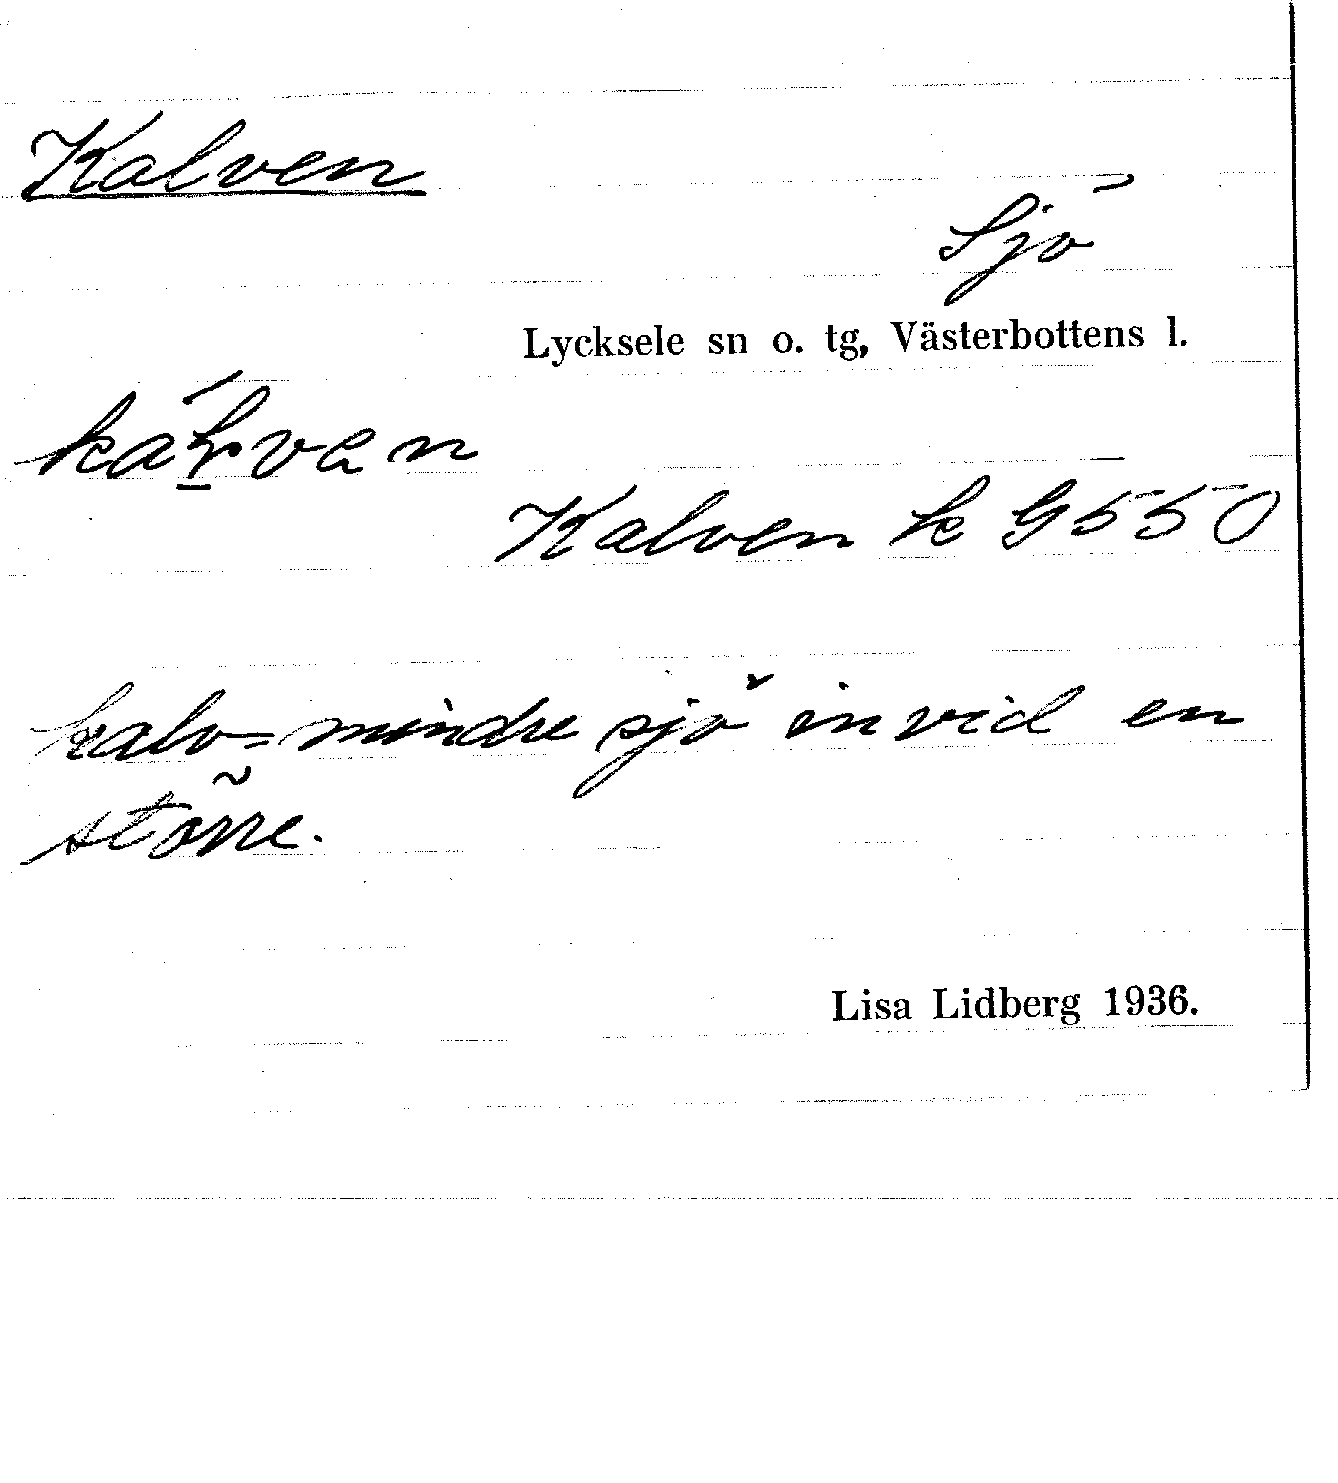 Kalven
Sjö
Lycksele sn o. tg, Västerbottens l.
Kalven k G550
kalv = mindre sjö invid en
större.
Lisa Lidberg 1936.